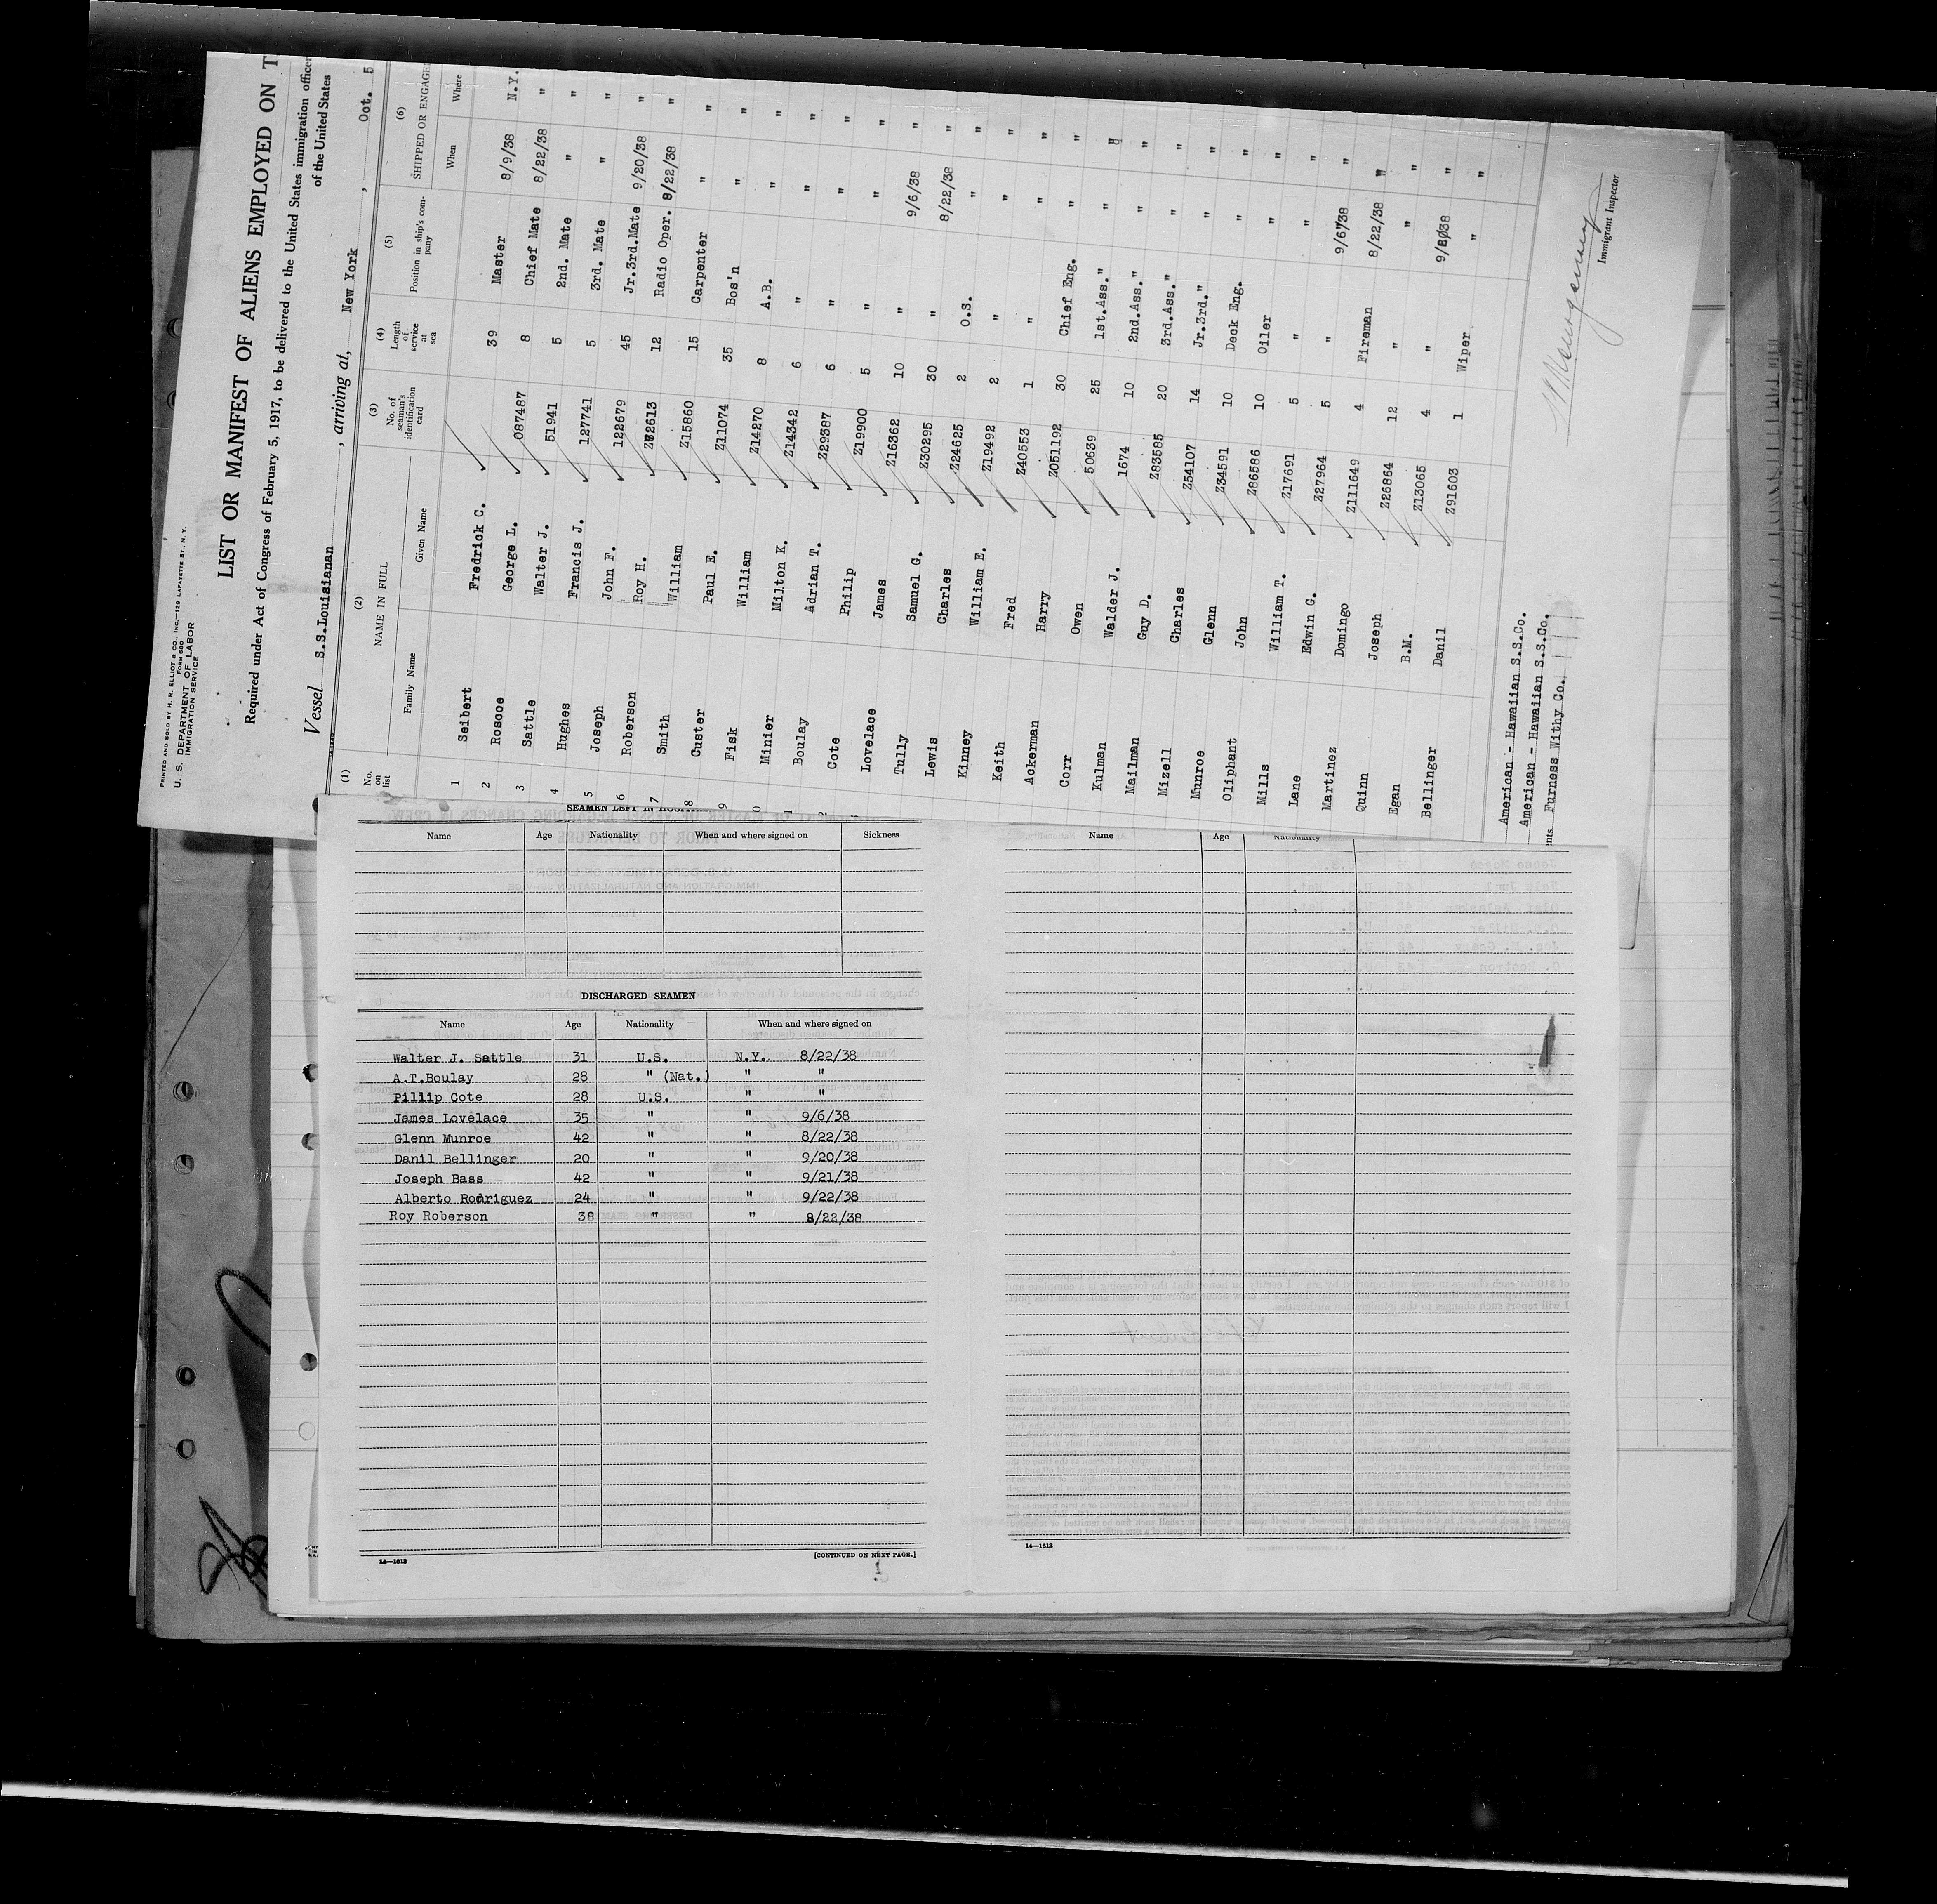 PRINTED AND SOLD BY H. R. ELLIOT & CO., INC.—129 LAFAYETTE ST., N. Y.
FORM 680
U. S. DEPARTMENT OF LABOR
IMMIGRATION SERVICE
LIST OR MANIFEST OF ALIENS EMPLOYED ON T
Required under Act of Congress of February 5, 1917, to be delivered to the United States immigration officer
of the United States
Vessel S.S.Louisianan, arriving at, New York, Oct. 5
(1) (2) (3) (4) (5) (6)
No. on list NAME IN FULL No. of seaman's identification card Length of service at sea Position in ship's company SHIPPED OR ENGAGE
Family Name Given Name When Where
1 Seibert Fredrick C. 39 Master 8/9/38 N.Y.
2 Roscoe George L. 087487 8 Chief Mate 8/22/38 "
3 Sattle Walter J. 51941 5 2nd. Mate " "
4 Hughes Francis J. 127741 5 3rd. Mate " "
5 Joseph John F. 122679 45 Jr.3rd.Mate 9/20/38 "
6 Roberson Roy H. 12 Radio Oper. 8/22/38 "
7 Smith William Z15860 15 Carpenter " "
8 Custer Paul E. Z11074 35 Bos'n " "
9 Fisk William Z14270 8 A.B. " "
0 Minier Milton K. Z14342 6 " " "
1 Boulay Adrian T. Z29387 6 " " "
2 Cote Philip Z19900 5 " " "
Lovelace James Z16362 10 " 9/6/38 "
Tully Samuel G. Z30295 30 " 8/22/38 "
Lewis Charles Z24625 2 O.S. " "
Kinney William E. Z19492 2 " " "
Keith Fred Z40553 1 " " "
Ackerman Harry Z051192 30 Chief Eng. " "
Corr Owen 50639 25 1st.Ass." " "
Kulman Walder J. 1674 10 2nd.Ass." " "
Mailman Guy D. Z83585 20 3rd.Ass." " "
Mizell Charles Z54107 14 Jr.3rd." " "
Munroe Glenn Z34591 10 Deck Eng. " "
Oliphant John Z86586 10 Oiler " "
Mills William T. Z17691 5 " " "
Lane Edwin G. Z27964 5 " " "
Martinez Domingo Z111649 4 Fireman 9/6/38 "
Quinn Joseph Z26864 12 " 8/22/38 "
Egan B.M. Z13065 4 " " "
Bellinger Danil Z91603 1 Wiper " "
American - Hawaiian S.S.Co.
American - Hawaiian S.S.Co.
nts Furness Withy Co.
Immigrant Inspector
SEAMEN LEFT IN HOSPITAL
Name Age Nationality When and where signed on Sickness
DISCHARGED SEAMEN
Name Age Nationality When and where signed on
Walter J. Sattle 31 U.S. N.Y. 8/22/38
A.T.Boulay 28 " (Nat.) " "
Pillip Cote 28 U.S. " "
James Lovelace 35 " " 9/6/38
Glenn Munroe 42 " " 8/22/38
Danil Bellinger 20 " " 9/20/38
Joseph Bass 42 " " 9/21/38
Alberto Rodriguez 24 " " 9/22/38
Roy Roberson 38 " " 8/22/38
14—1612
[CONTINUED ON NEXT PAGE.]
1
Name Age Nationality
14—1612